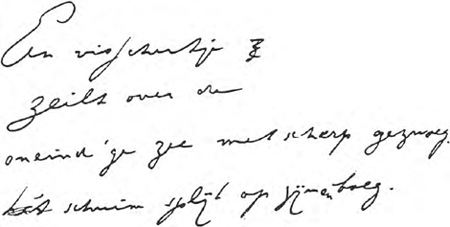 Een visschertje
zeilt over de
oneind'ge zee met scherp gezwoeg.
het schuim splijt op zijnen boeg.